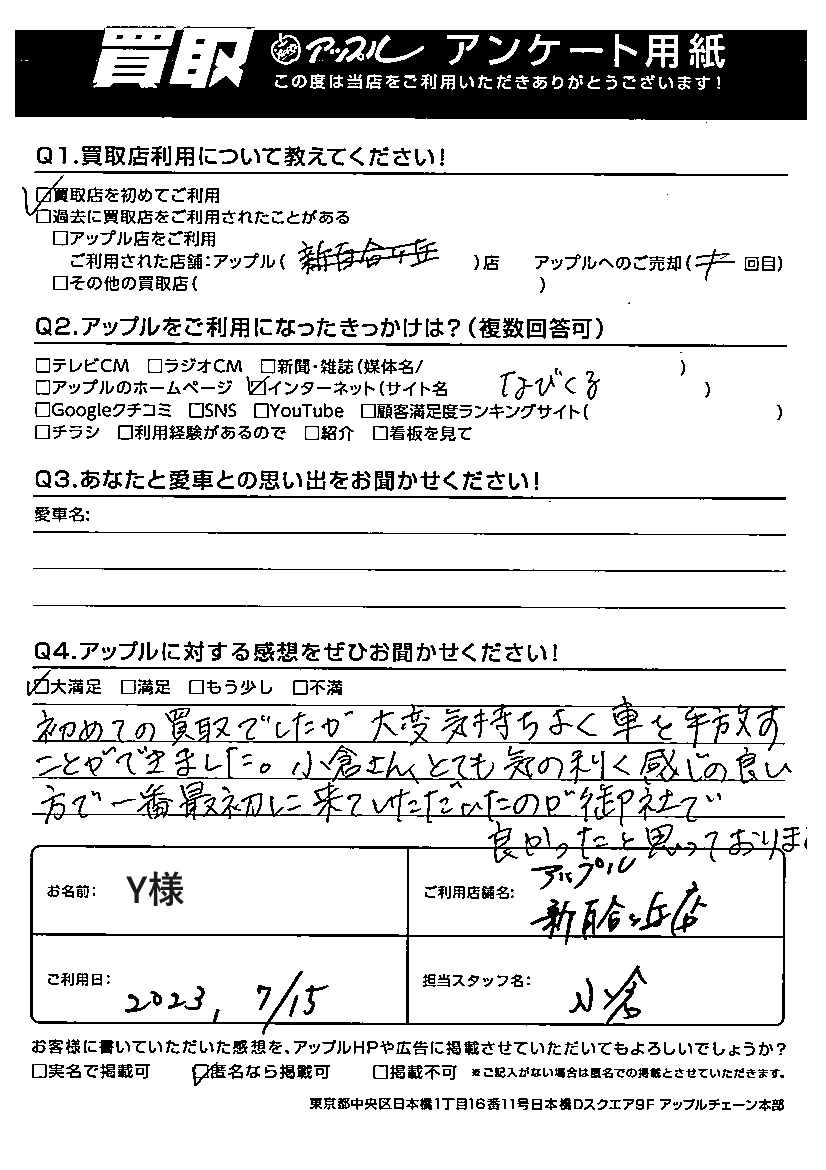 買取 アップル アンケート用紙
この度は当店をご利用いただきありがとうございます!
Q1.買取店利用について教えてください!
☑買取店を初めてご利用
□過去に買取店をご利用されたことがある
□アップル店をご利用
ご利用された店舗:アップル( 新百合ヶ丘 )店 アップルへのご売却( 回目)
□その他の買取店( )
Q2.アップルをご利用になったきっかけは?(複数回答可)
□テレビCM □ラジオCM □新聞・雑誌(媒体名/ )
□アップルのホームページ ☑インターネット(サイト名 なびくる )
□Googleクチコミ □SNS □YouTube □顧客満足度ランキングサイト( )
□チラシ □利用経験があるので □紹介 □看板を見て
Q3.あなたと愛車との思い出をお聞かせください!
愛車名:
Q4.アップルに対する感想をぜひお聞かせください!
☑大満足 □満足 □もう少し □不満
初めての買取でしたが大変気持ちよく車を手放す
ことができました。小倉さん、とても気の利く感じの良い
方で一番最初に来ていただいたのが御社で
良かったと思っておりま
お名前: Y様
ご利用店舗名: アップル
新百合ヶ丘店
ご利用日: 2023, 7/15
担当スタッフ名: 小倉
お客様に書いていただいた感想を、アップルHPや広告に掲載させていただいてもよろしいでしょうか?
□実名で掲載可 ☑匿名なら掲載可 □掲載不可 ※ご記入がない場合は匿名での掲載とさせていただきます。
東京都中央区日本橋1丁目16番11号日本橋Dスクエア9F アップルチェーン本部